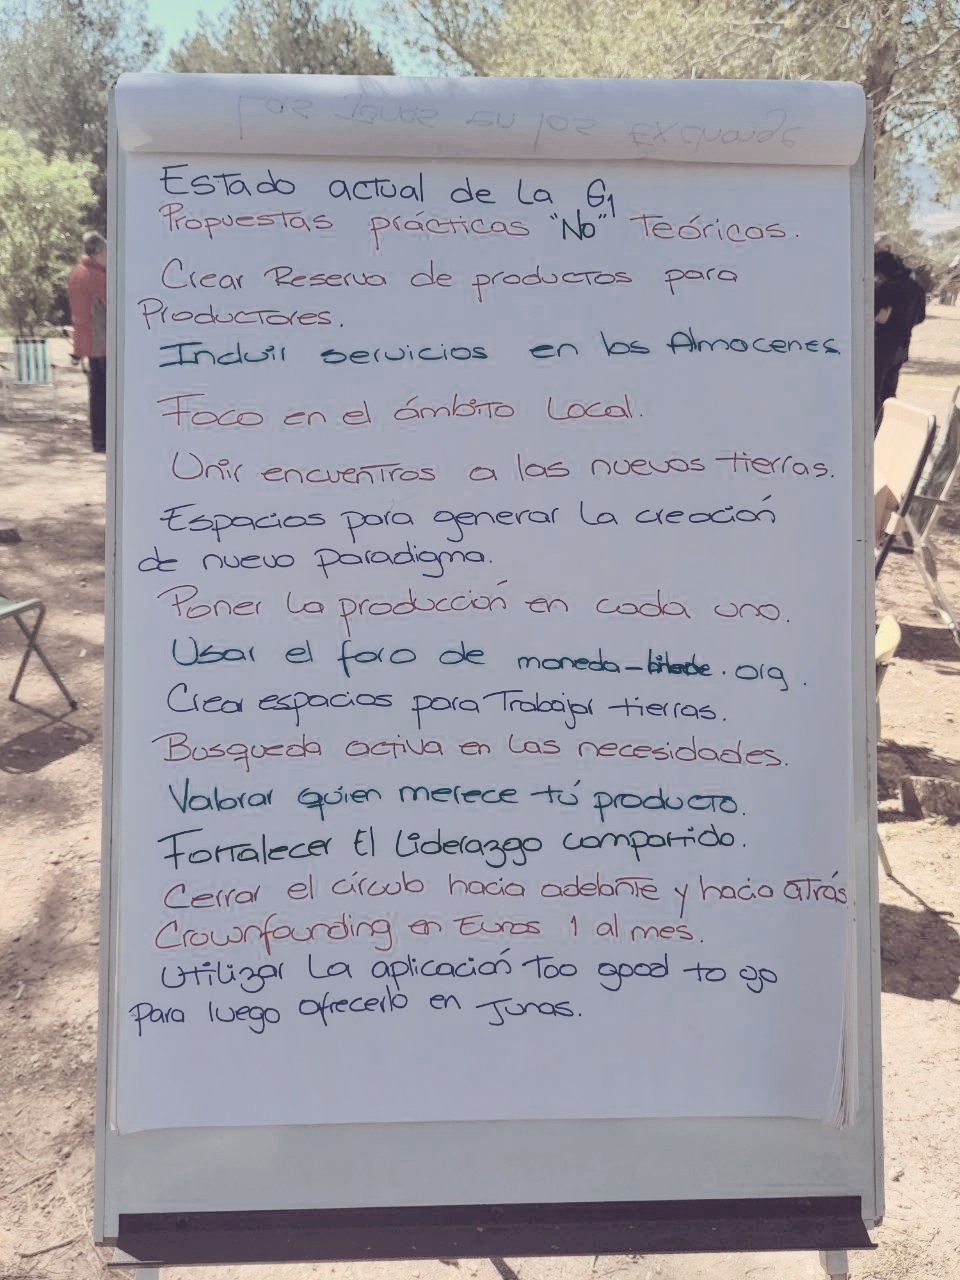 Estado actual de la G1
Propuestas prácticas "No" Teóricas.
Crear Reserva de productos para
Productores.
Incluir servicios en los Almacenes
Foco en el ámbito Local.
Unir encuentros a las nuevas tierras.
Espacios para generar la creación
de nuevo paradigma.
Poner la producción en cada uno.
Usar el foro de moneda-libre.org.
Crear espacios para Trabajar tierras.
Busqueda activa en las necesidades.
Valorar quien merece tú producto.
Fortalecer El Liderazgo compartido.
Cerrar el círculo hacia adelante y hacia atrás
Crownfounding en Euros 1 al mes.
Utilizar la aplicación Too good to go
Para luego ofrecerlo en Junas.